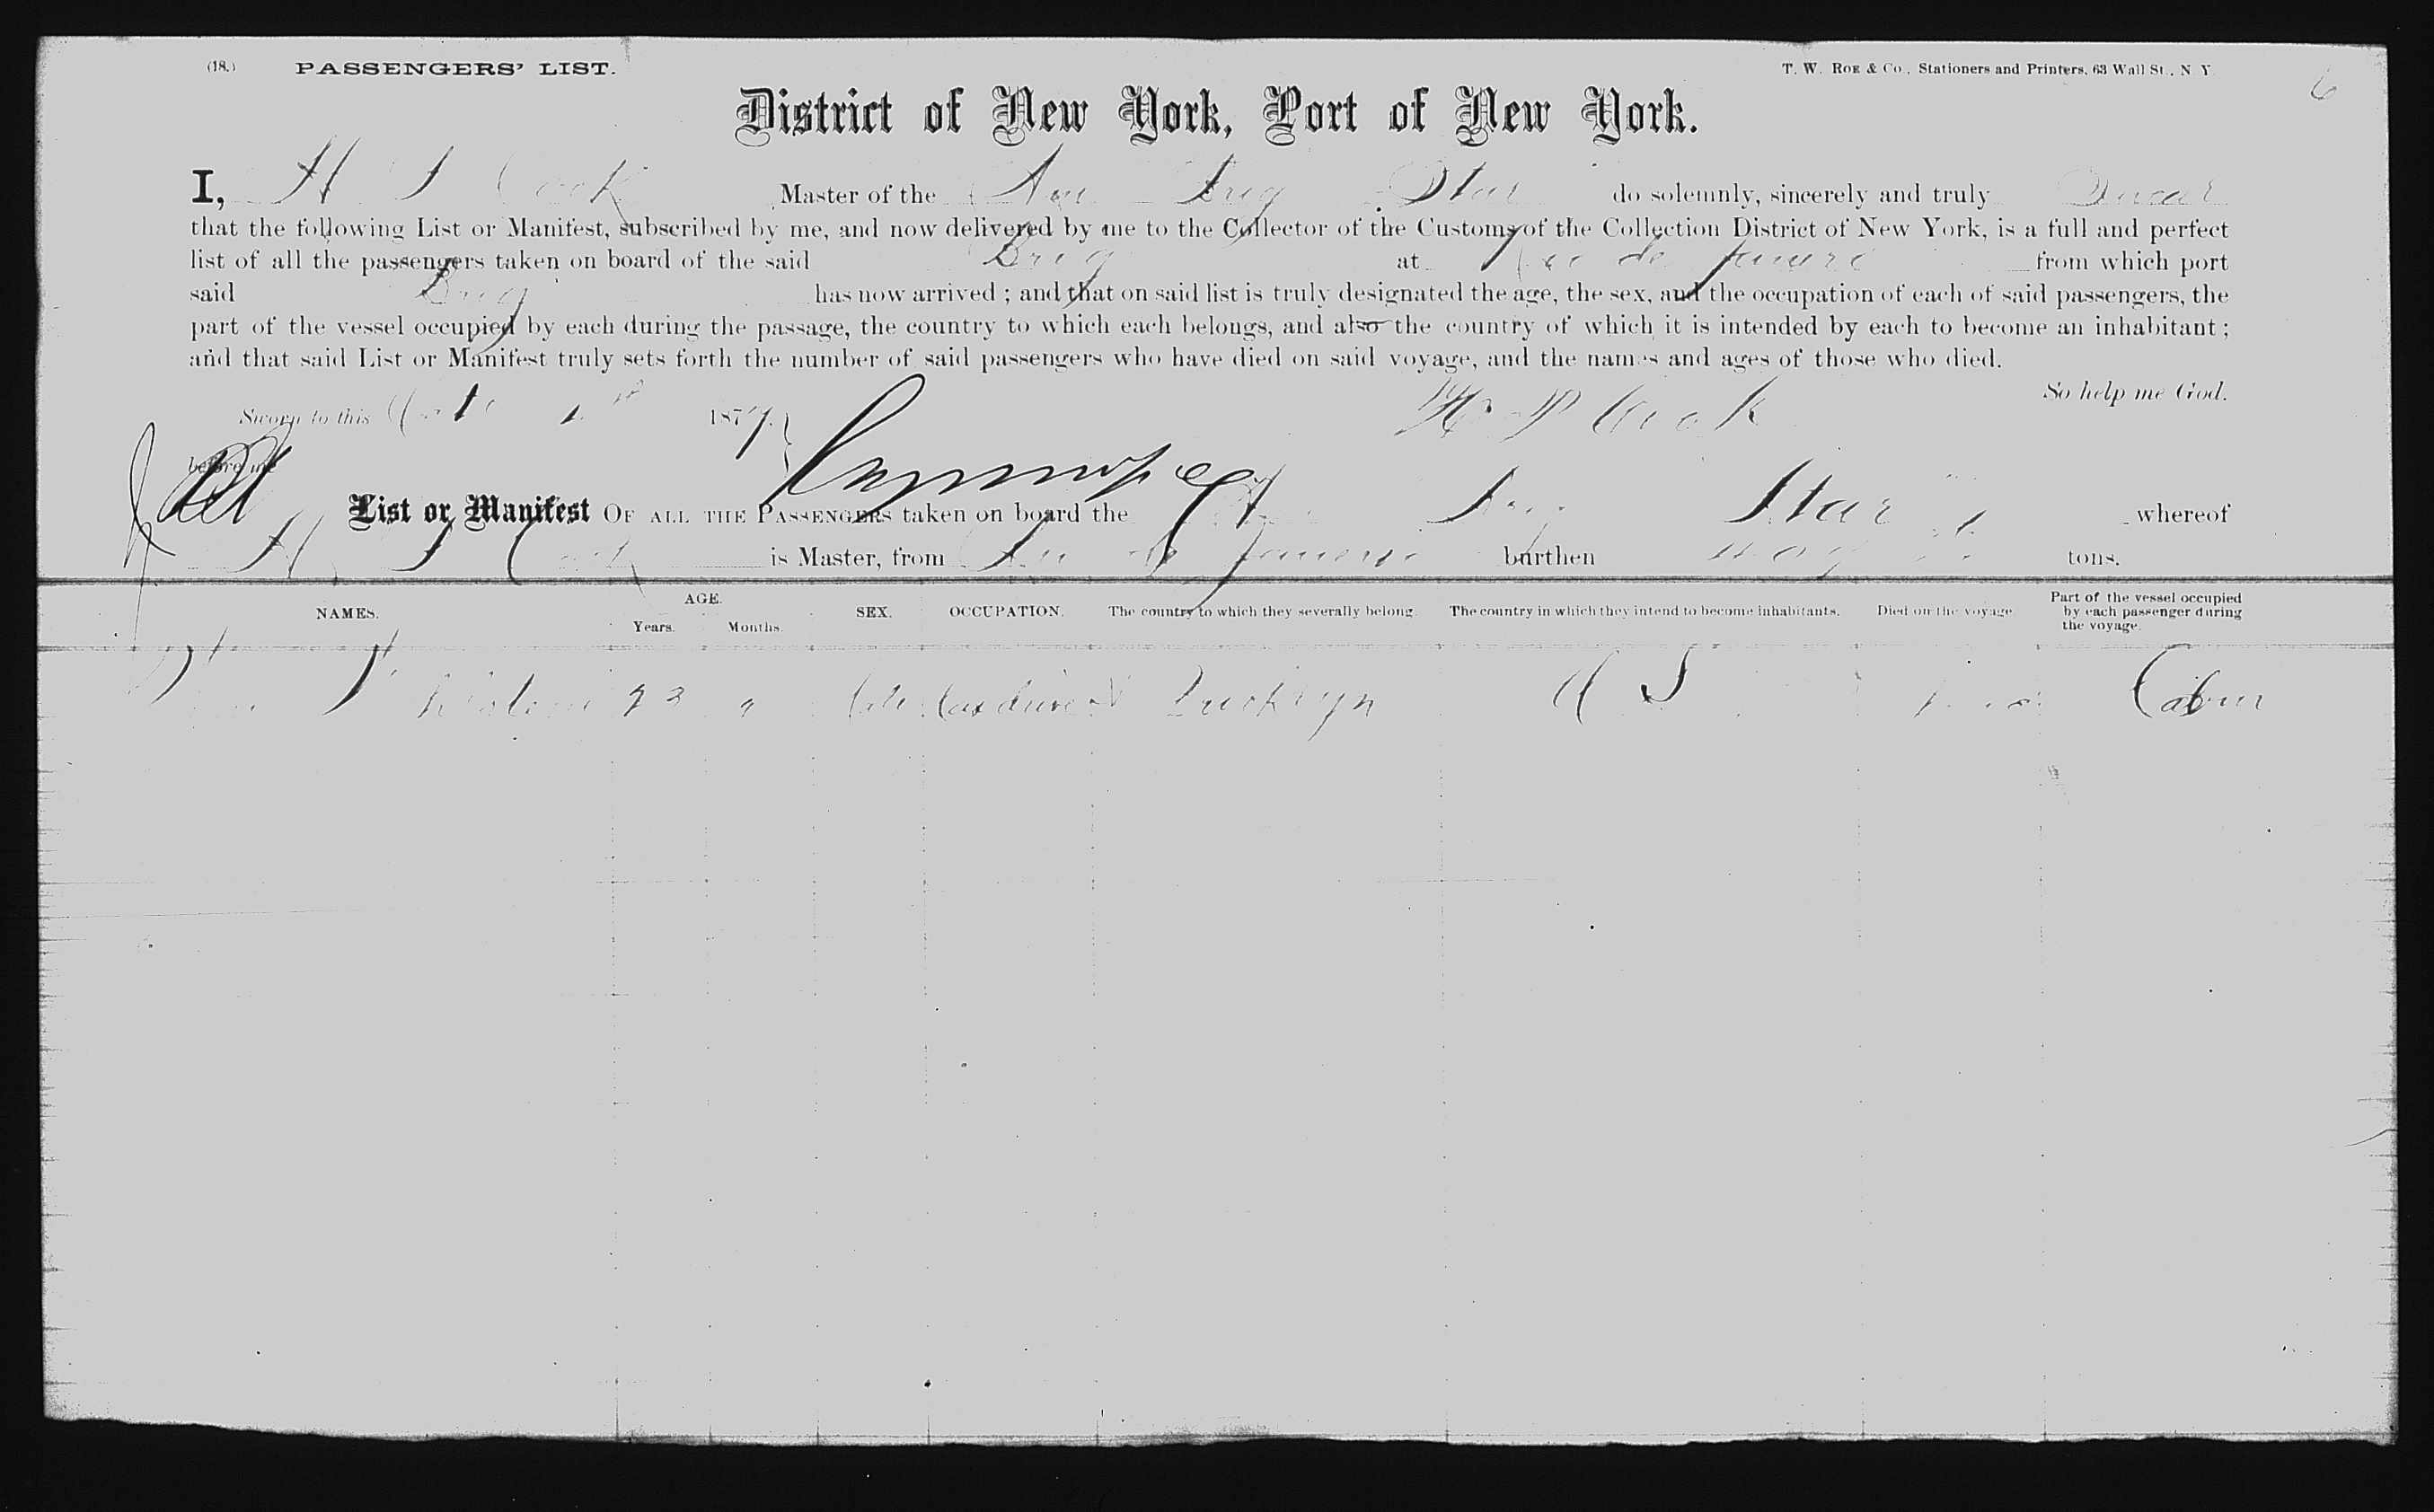 (18.) PASSENGERS' LIST. T. W. ROE & Co., Stationers and Printers, 63 Wall St., N. Y.
6
District of New York, Port of New York.
I, H Cook Master of the Am Brig Star do solemnly, sincerely and truly Swear
that the following List or Manifest, subscribed by me, and now delivered by me to the Collector of the Customs of the Collection District of New York, is a full and perfect
list of all the passengers taken on board of the said Brig at Rio de Janeiro from which port
said Brig has now arrived; and that on said list is truly designated the age, the sex, and the occupation of each of said passengers, the
part of the vessel occupied by each during the passage, the country to which each belongs, and also the country of which it is intended by each to become an inhabitant;
and that said List or Manifest truly sets forth the number of said passengers who have died on said voyage, and the names and ages of those who died.
So help me God.
Sworn to this 1877. Cook
before me
List or Manifest OF ALL THE PASSENGERS taken on board the Brig Star whereof
H Cook is Master, from Rio de Janeiro burthen tons.
NAMES. AGE. Years. Months. SEX. OCCUPATION. The country to which they severally belong. The country in which they intend to become inhabitants. Died on the voyage. Part of the vessel occupied by each passenger during the voyage.
U S Cabin